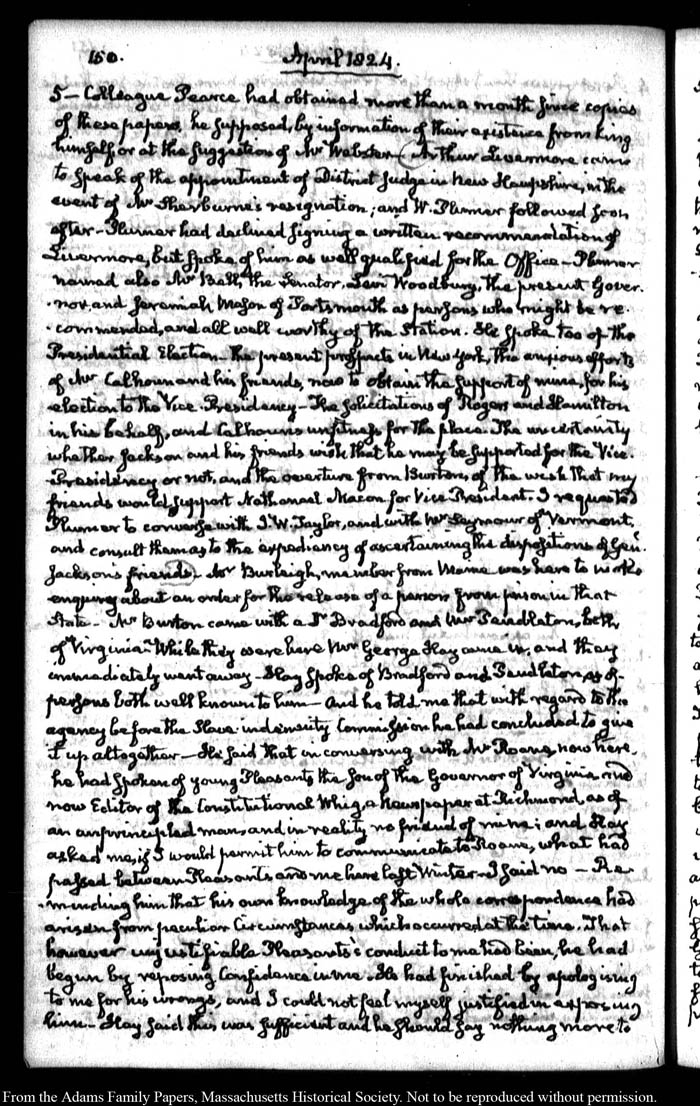 150. April 1824.
5— Colleague Pearce had obtained more than a month since copies
of these papers, he supposed, by information of their existence from King
himself or at the suggestion of Mr Webster— (Arthur Livermore came
to speak of the appointment of District Judge in New Hampshire, in the
event of Mr Sherburne's resignation; and W. Plumer followed soon
after— Plumer had declined signing a written recommendation of
Livermore, but spoke of him as well qualified for the Office— Plumer
named also Mr Bell, the Senator, Levi Woodbury, the present Gover-
-nor and Jeremiah Mason of Portsmouth as persons who might be re-
-commended, and all well worthy of the Station. He spoke too of the
Presidential Election— the present prospects in New York, the anxious efforts
of Mr Calhoun and his friends, now to obtain the support of mine, for his
election to the Vice-Presidency— The solicitations of Rogers and Hamilton
in his behalf, and Calhoun's unfitness for the place. The uncertainty
whether Jackson and his friends wish that he may be supported for the Vice-
-Presidency or not, and the overture from Burton, of the wish that my
friends would support Nathanael Macon for Vice President. I requested
Plumer to converse with J. W. Taylor, and with Mr Seymour of Vermont,
and consult them as to the expediency of ascertaining the dispositions of Genl.
Jackson's friends)— Mr Burleigh, member from Maine was here to make
enquiry about an order for the release of a person from prison in that
State— Mr Burton came with a Dr Bradford and Mr Pendleton, both
of Virginia— While they were here Mr George Hay came in, and they
immediately went away— Hay spoke of Bradford and Pendleton, as of
persons both well known to him— And he told me that with regard to the
agency before the Slave indemnity Commission he had concluded to give
it up altogether— He said that in conversing with Mr Roane, now here,
he had spoken of young Pleasants the son of the Governor of Virginia and
now Editor of the Constitutional Whig, a Newspaper at Richmond, as of
an unprincipled man, and in reality no friend of mine; and Hay
asked me, if I would permit him to communicate to Roane, what had
passed between Pleasants and me here last Winter— I said no— Re-
-minding him that his own knowledge of the whole correspondence had
arisen from peculiar Circumstances which occurred at the time. That
however unjustifiable Pleasants's conduct to me had been, he had
begun by reposing Confidence in me. He had finished by apologising
to me for his wrongs, and I could not feel myself justified in exposing
him— Hay said this was sufficient and he should say nothing more to
From the Adams Family Papers, Massachusetts Historical Society. Not to be reproduced without permission.